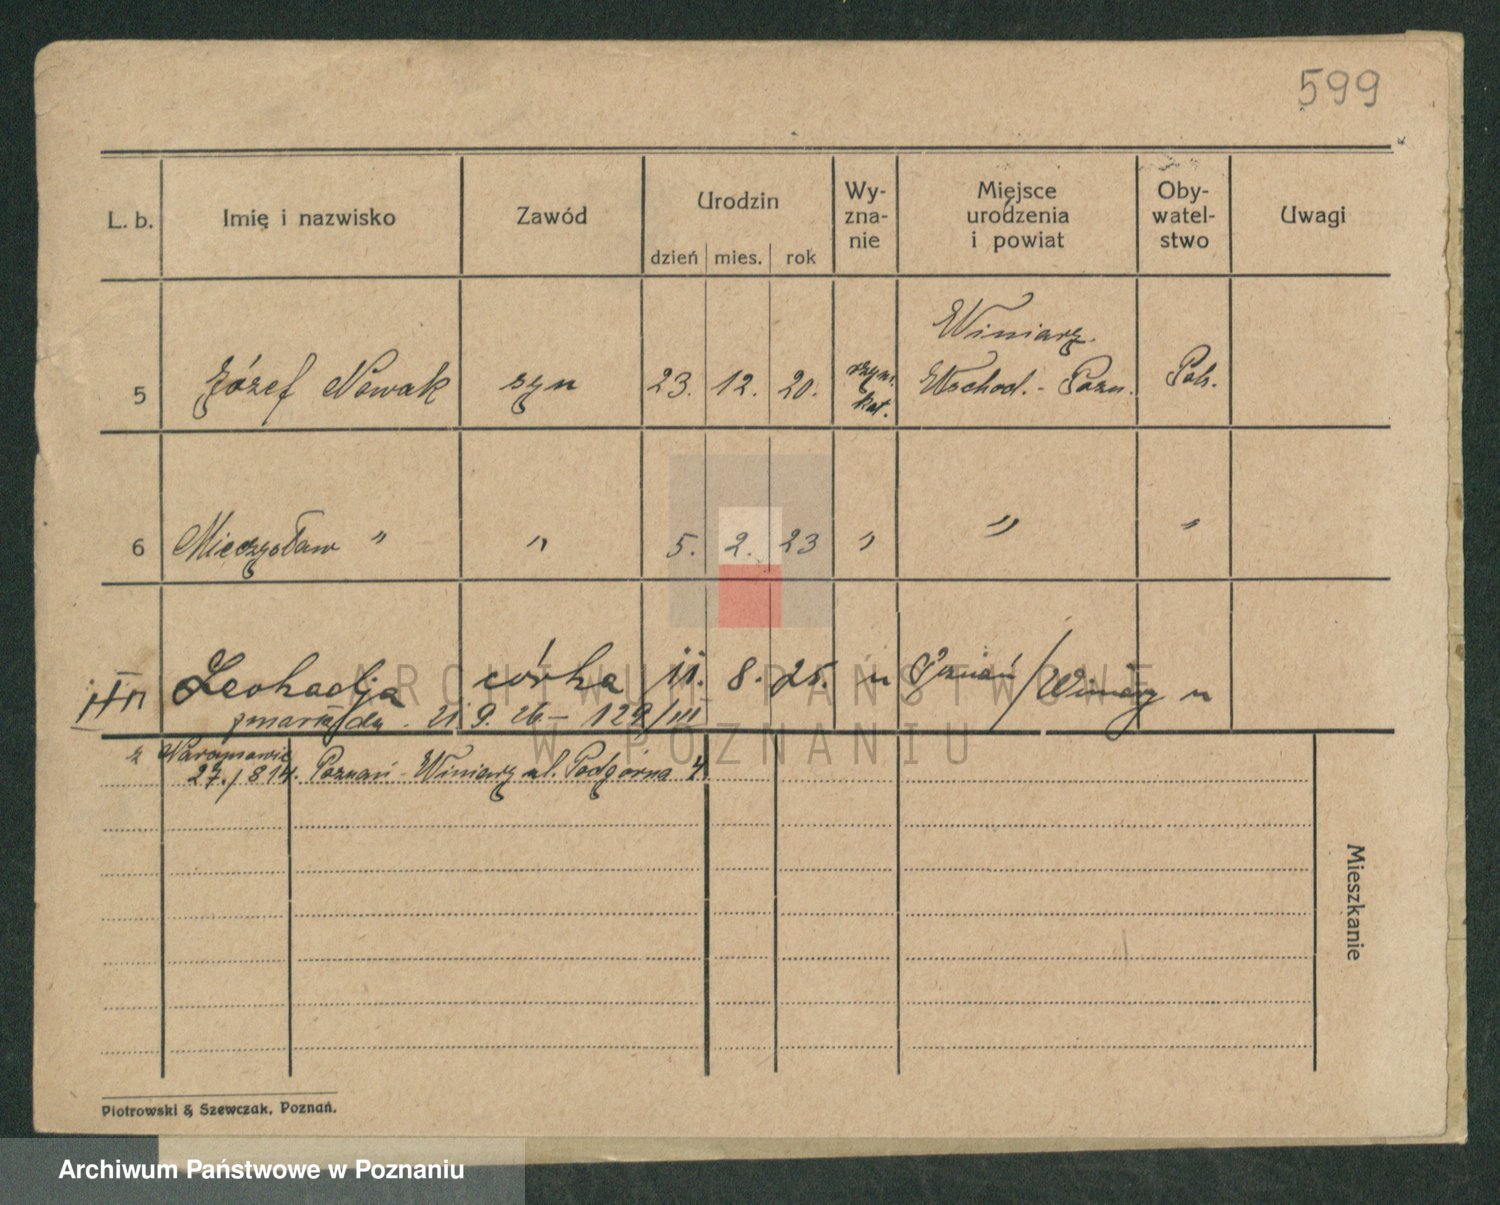 599
L. b. Imię i nazwisko Zawód Urodzin dzień mies. rok Wy-zna-nie Miejsce urodzenia i powiat Oby-watel-stwo Uwagi
Winiary
5 Józef Nowak syn 23. 12. 20. rzym. kat. Wschod. - Pozn. Pols.
6 Mieczysław " " 5. 2. 23 " " "
Leokadja córka 11. 8. 25. " Poznań/Winiary "
zmarła dn. 21. 9. 26 - 129/III
z Waraynowic
27./8 14. Poznań - Winiary ul. Podgórna 4.
Mieszkanie
Piotrowski & Szewczak, Poznań.
ARCHIWUM PAŃSTWOWE
W POZNANIU
Archiwum Państwowe w Poznaniu